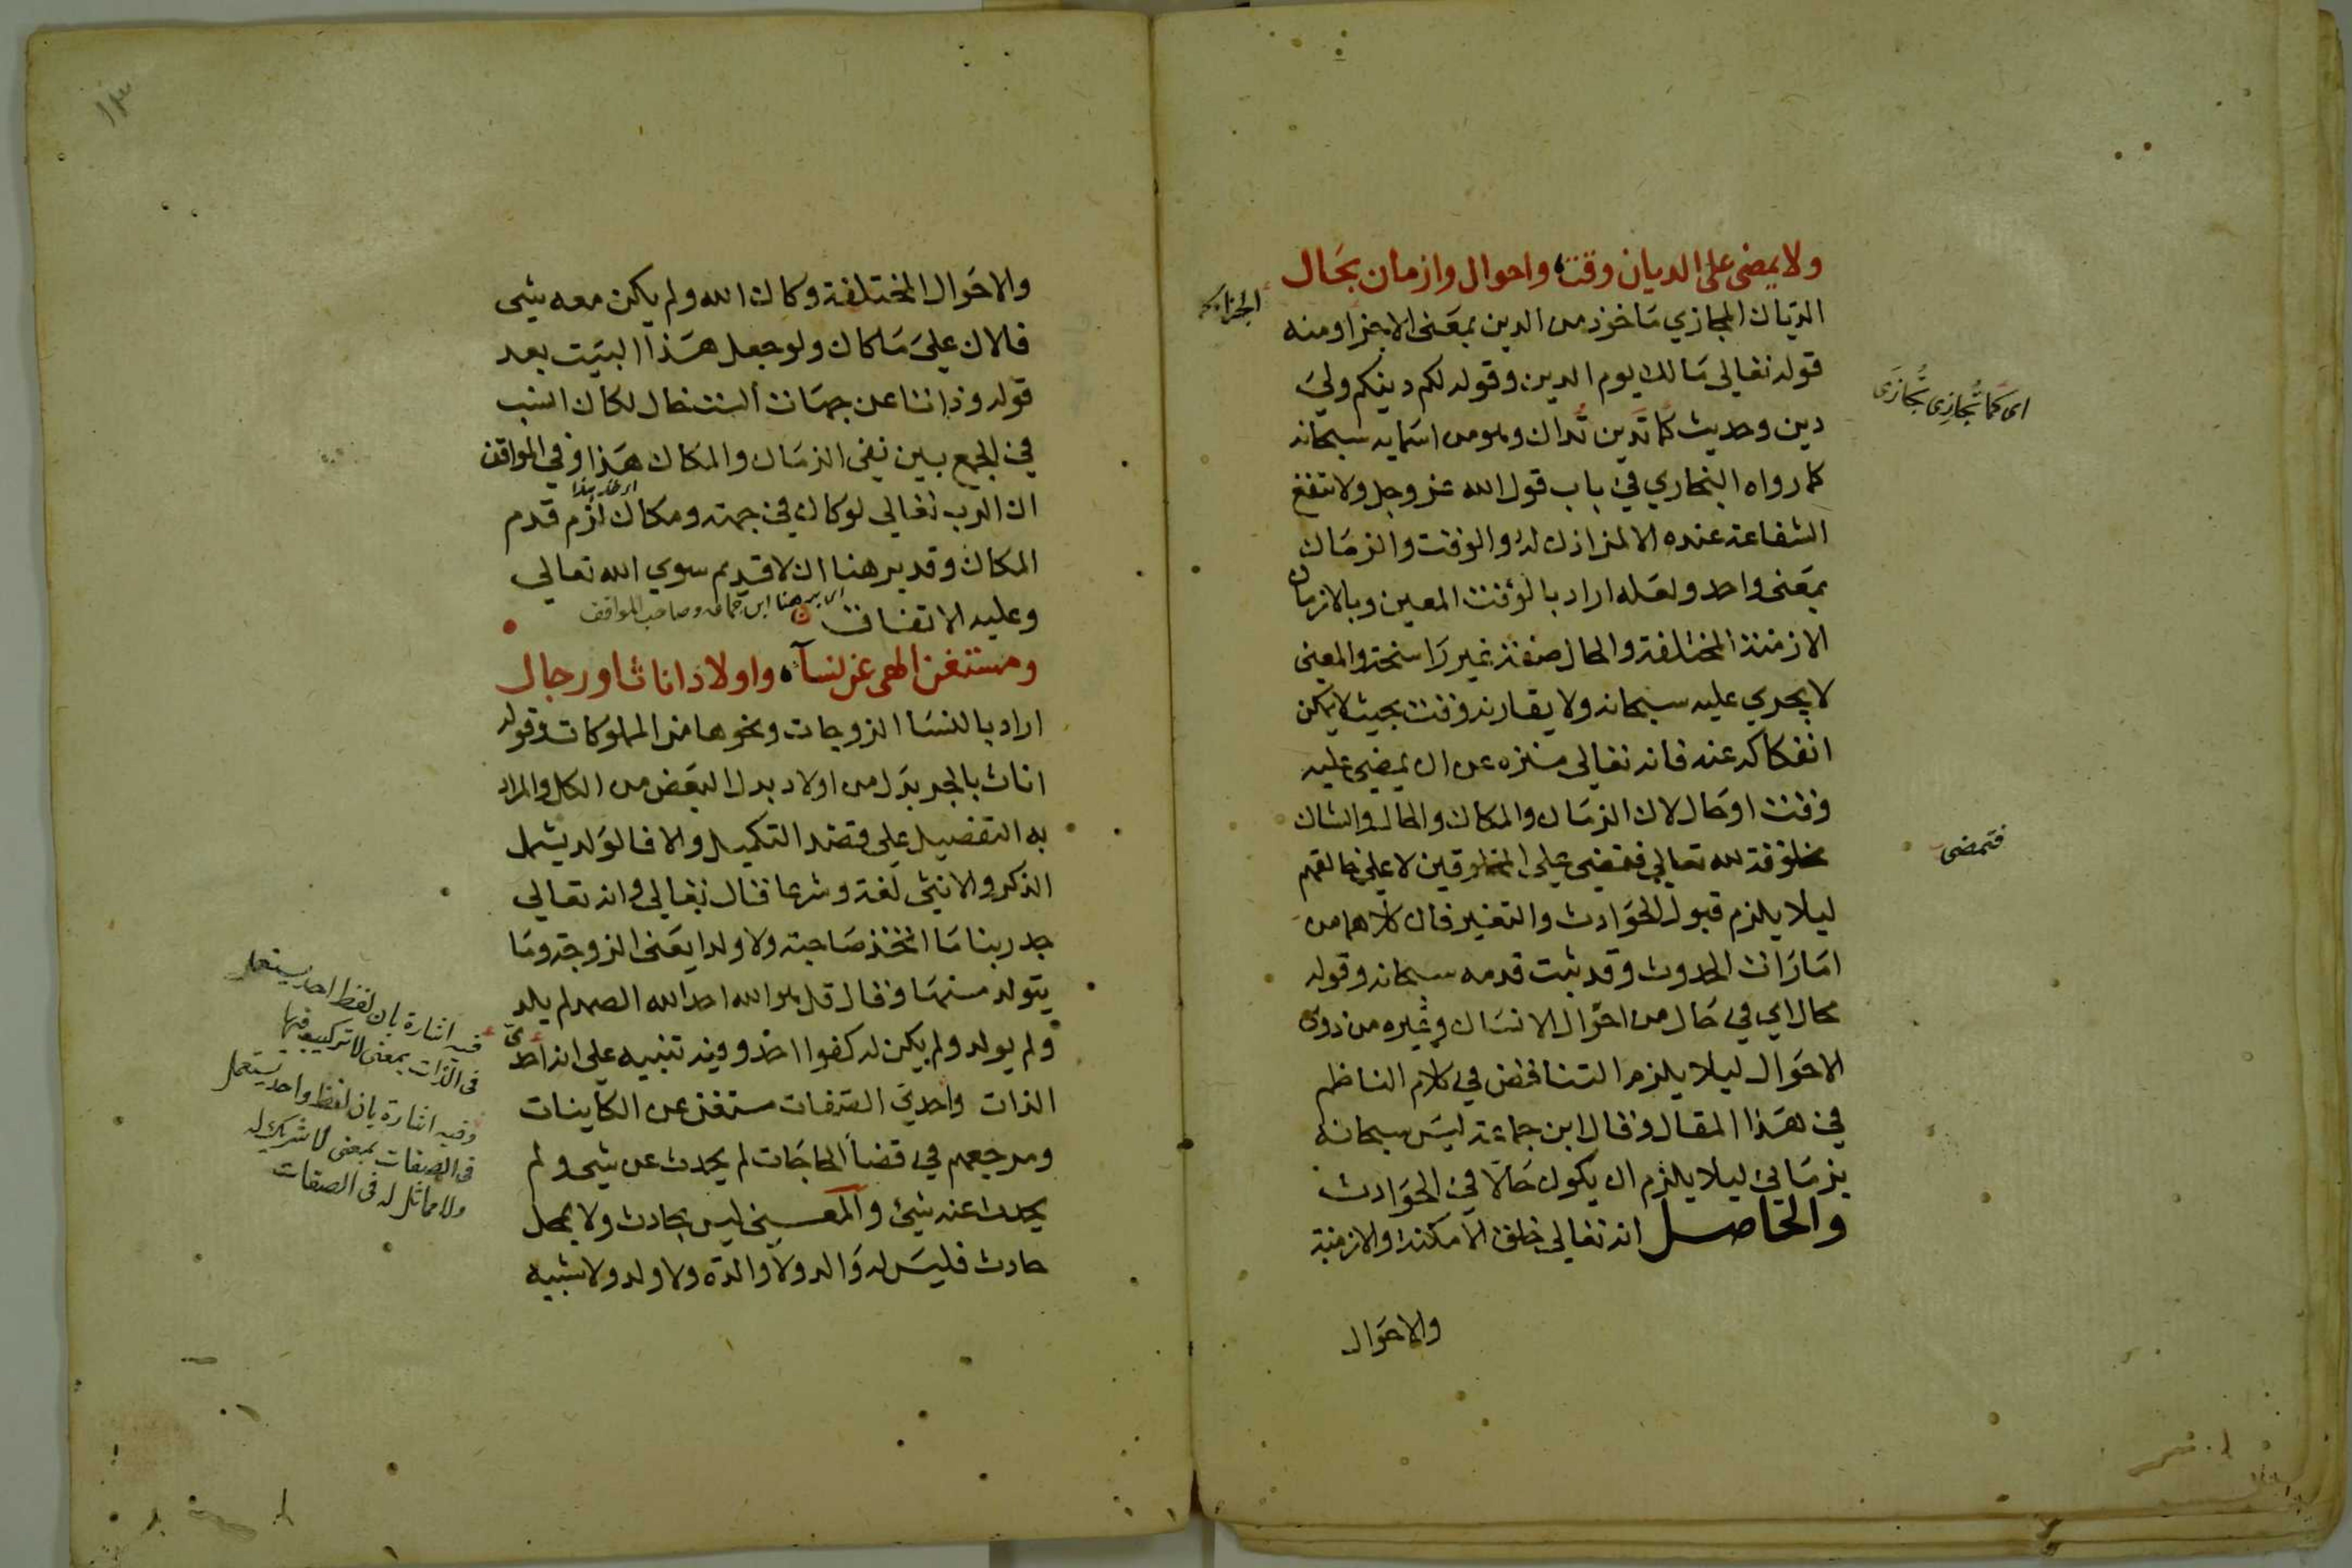 ولا يمضى على الديان وقت واحوال وازمان بحال
الديان المجازي ماخوذ من الدين بمعنى الاجزا ومنه
الجزا
قوله تعالى مالك يوم الدين وقوله لكم دينكم ولي
اى كما تجازى تجازى
دين وحديث كما تدين تدان وهو من اسمايه سبحانه
كما رواه البخاري في باب قول الله عز وجل ولا تنفع
الشفاعة عنده الا لمن اذن له والوقت والزمان
بمعنى واحد ولعله اراد بالوقت المعين وبالازمان
الازمنة المختلفة والحال صفة غير راسخة والمعنى
لا يجري عليه سبحانه ولا يقارنه وقت بحيث لا يمكن
انفكاكه عنه فانه تعالى منزه عن ان يمضي عليه
وقت او حال لان الزمان والمكان والحال والشان
مخلوقة لله تعالى فتمضي على المخلوقين لا على خالقهم
فتمضى
ليلا يلزم قبول الحوادث والتغير فان كلاهما من
امارات الحدوث وقد ثبت قدمه سبحانه وقوله
بحال اي في حال من احوال الانسان وغيره من ذوى
الاحوال ليلا يلزم التناقض في كلام الناظم
في هذا المقال وقال ابن جماعة ليس سبحانه
بزماني ليلا يلزم ان يكون حالا في الحوادث
والحاصل انه تعالى خلق الامكنة والازمنة
والاحوال
والاحوال المختلفة وكان الله ولم يكن معه شي
فالان على ما كان ولو جعل هذا البيت بعد
قوله وذاتا عن جهات الست خال لكان انسب
في الجمع بين نفى الزمان والمكان هذا وفي المواقف
ان الرب تعالى لو كان في جهة ومكان لزم قدم
المكان وقد برهنا ان لا قديم سوى الله تعالى
وعليه الاتفاق
اى برهنا ابن جماعه وصاحب المواقف
ومستغن الهى عن نساء واولاد اناث او رجال
اراد بالنسا الزوجات ونحوها من المملوكات وقوله
اناث بالجر بدل من اولاد بدل البعض من الكل والمراد
به التفصيل على قصد التكميل والا فالولد يشمل
الذكر والانثى لغة وشرعا قال تعالى وانه تعالى
جد ربنا ما اتخذ صاحبة ولا ولدا يعنى الزوجة وما
يتولد منهما وقال قل هو الله احد الله الصمد لم يلد
ولم يولد ولم يكن له كفوا احد وفيه تنبيه على انه احدى
الذات واحدي الصفات مستغن عن الكاينات
ومرجعهم في قضا الحاجات لم يحدث عن شي ولم
يحدث عنه شئ والمعنى ليس بحادث ولا بمحل
حادث فليس له والد ولا والدة ولا ولد ولا شبيه
فيه اشارة بان لفظ احد يستعمل
فى الذات بمعنى لا تركيب فيها
وفيه اشارة بان لفظ واحد يستعمل
فى الصفات بمعنى لا شريك له
ولا مماثل له فى الصفات